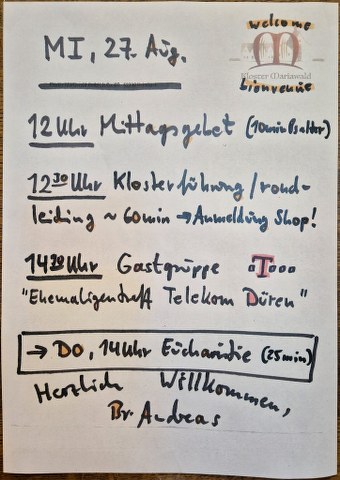 welcome
Kloster Mariawald
bienvenue
MI, 27. Aug.
12 Uhr Mittagsgebet (10min Psalter)
12³⁰ Uhr Klosterführung/rond-
leiding ~ 60min → Anmeldung Shop!
14³⁰ Uhr Gastgruppe T
"Ehemaligentreff Telekom Düren"
→ DO, 14 Uhr Eucharistie (25min)
Herzlich Willkommen,
Br. Andreas